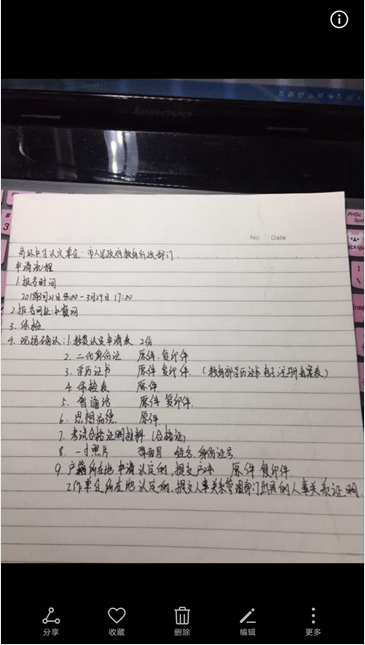 lenovo
No. Date
PrtSc
市人民政府教育行政部门
申请流程
1.报名时间
2018年3月21日 9:00-3月29日 17:00
2.报名网址:中资网
3.体检
4.现场确认:1.教资认定申请表 2份
2.二代身份证 原件.复印件
3.学历证书 原件 复印件 (教育部学历证书电子注册备案表)
4.体检表 原件
5.普通话 原件 复印件.
6.思想品德 原件.
7.考试合格证明材料 (合格证)
8.一寸照片 背面 姓名.身份证号
9.户籍所在地申请认定的,提交户口本 原件 复印件.
工作单位所在地认定的,提交人事关系管理部门出具的人事关系证明
分享
收藏
删除
编辑
更多